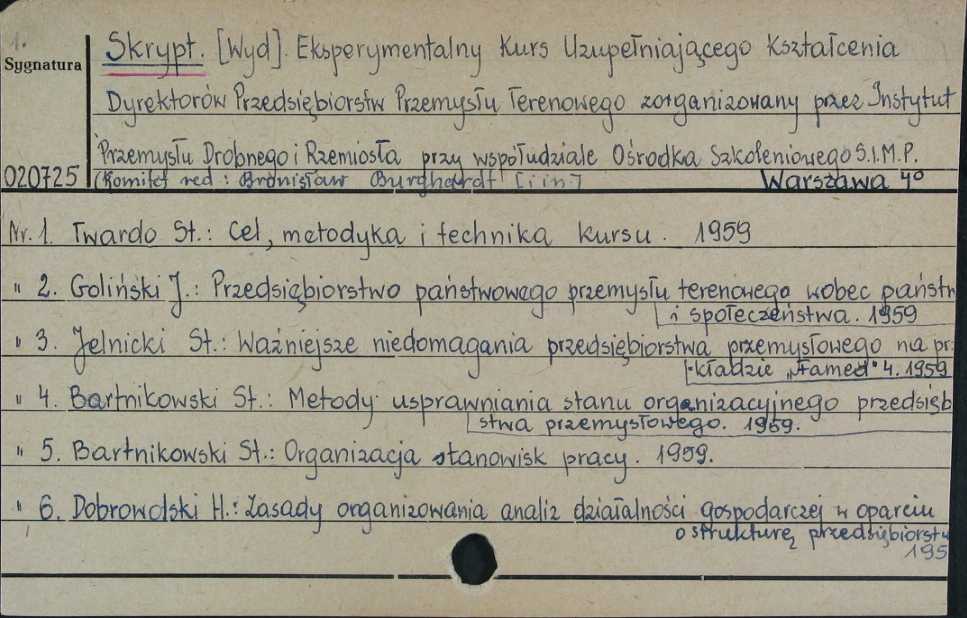 1.
Skrypt. [Wyd]. Eksperymentalny Kurs Uzupełniającego Kształcenia
Sygnatura
Dyrektorów Przedsiębiorstw Przemysłu Terenowego zorganizowany przez Instytut
Przemysłu Drobnego i Rzemiosła przy współudziale Ośrodka Szkoleniowego S.I.M.P.
020725 (Komitet red: Bronisław Burghardt [i in.] Warszawa 4°
Nr. 1. Twardo St.: Cel, metodyka i technika kursu. 1959
" 2. Goliński J.: Przedsiębiorstwo państwowego przemysłu terenowego wobec państw
i społeczeństwa. 1959
" 3. Jelnicki St.: Ważniejsze niedomagania przedsiębiorstwa przemysłowego na pr
kładzie „Famed" 4. 1959
" 4. Bartnikowski St.: Metody usprawniania stanu organizacyjnego przedsięb
stwa przemysłowego. 1959.
" 5. Bartnikowski St.: Organizacja stanowisk pracy. 1959.
" 6. Dobrowolski H.: Zasady organizowania analiz działalności gospodarczej w oparciu
o strukturę przedsiębiorstw
195